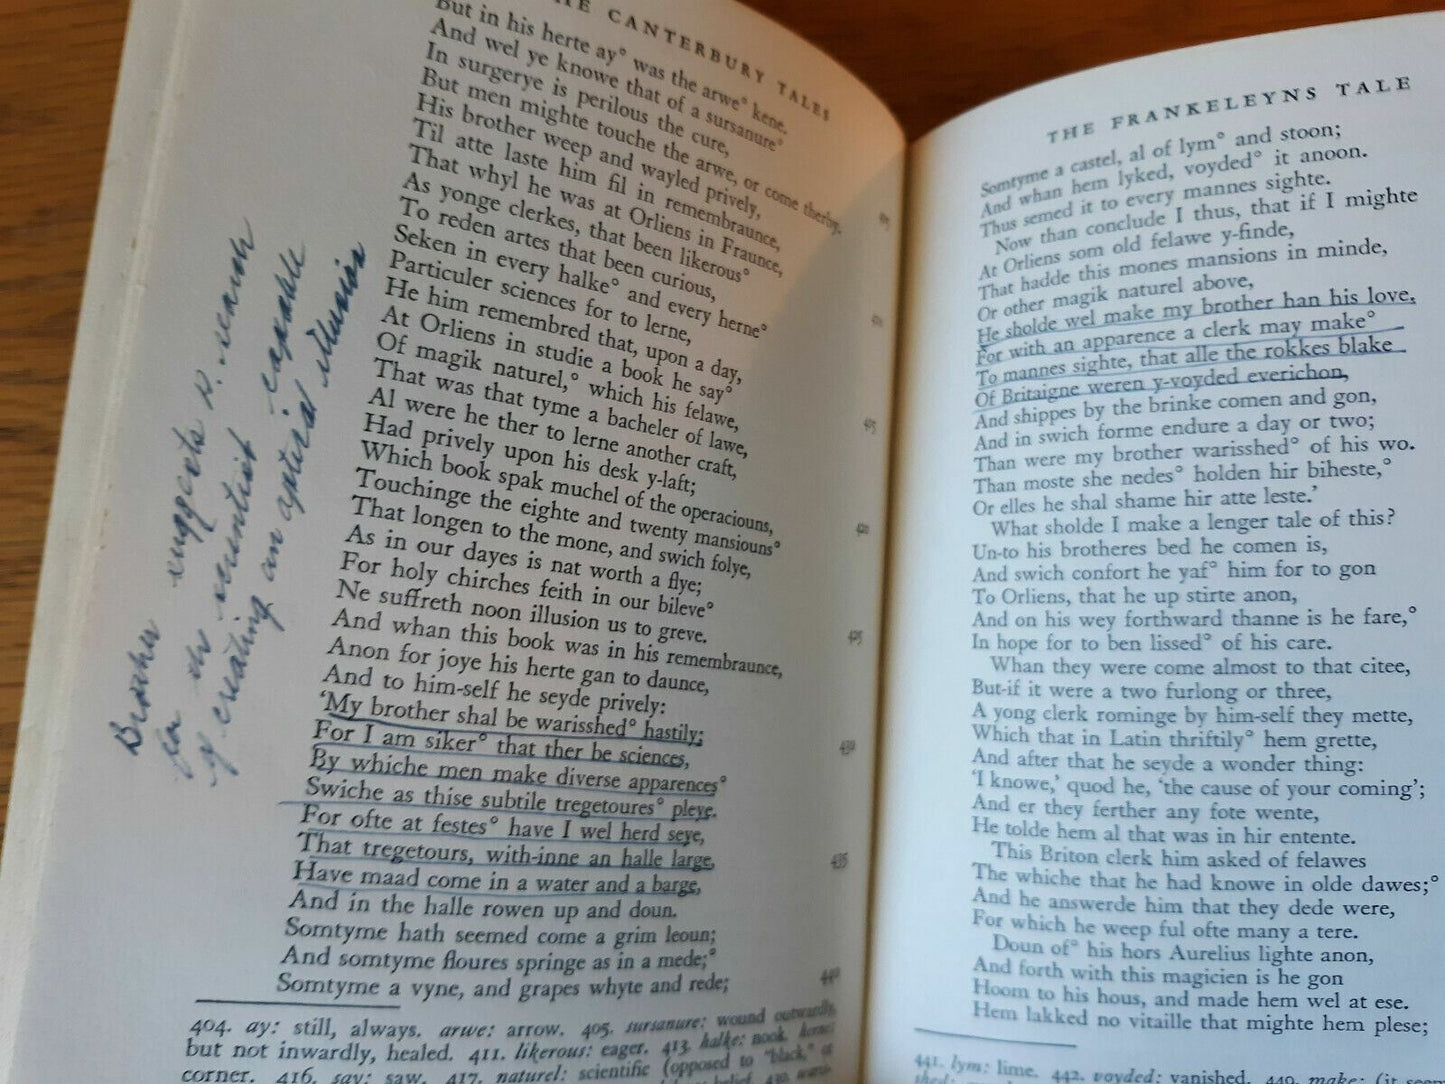 THE CANTERBURY TALES
But in his herte ay° was the arwe° kene.
And wel ye knowe that of a sursanure°
In surgerye is perilous the cure,
But men mighte touche the arwe, or come therby.
His brother weep and wayled prively,
Til atte laste him fil in remembraunce,
That whyl he was at Orliens in Fraunce,
As yonge clerkes, that been likerous°
To reden artes that been curious,
Seken in every halke° and every herne°
Particuler sciences for to lerne,
He him remembred that, upon a day,
At Orliens in studie a book he say°
Of magik naturel,° which his felawe,
That was that tyme a bacheler of lawe,
Al were he ther to lerne another craft,
Had prively upon his desk y-laft;
Which book spak muchel of the operaciouns,
Touchinge the eighte and twenty mansiouns°
That longen to the mone, and swich folye,
As in our dayes is nat worth a flye;
For holy chirches feith in our bileve°
Ne suffreth noon illusion us to greve.
And whan this book was in his remembraunce,
Anon for joye his herte gan to daunce,
And to him-self he seyde prively:
'My brother shal be warisshed° hastily;
For I am siker° that ther be sciences,
By whiche men make diverse apparences°
Swiche as thise subtile tregetoures° pleye.
For ofte at festes° have I wel herd seye,
That tregetours, with-inne an halle large,
Have maad come in a water and a barge,
And in the halle rowen up and doun.
Somtyme hath seemed come a grim leoun;
And somtyme floures springe as in a mede;°
Somtyme a vyne, and grapes whyte and rede;
405
410
415
420
425
430
435
440
404. ay: still, always. arwe: arrow. 405. sursanure: wound outwardly,
but not inwardly, healed. 411. likerous: eager. 413. halke: nook. herne:
corner. 416. say: saw. 417. naturel: scientific (opposed to "black," or
Brother suggests a search
for scientist capable
of creating an optical illusion
THE FRANKELEYNS TALE
Somtyme a castel, al of lym° and stoon;
And whan hem lyked, voyded° it anoon.
Thus semed it to every mannes sighte.
Now than conclude I thus, that if I mighte
At Orliens som old felawe y-finde,
That hadde this mones mansions in minde,
Or other magik naturel above,
He sholde wel make my brother han his love.
For with an apparence a clerk may make°
To mannes sighte, that alle the rokkes blake
Of Britaigne weren y-voyded everichon,
And shippes by the brinke comen and gon,
And in swich forme endure a day or two;
Than were my brother warisshed° of his wo.
Than moste she nedes° holden hir biheste,°
Or elles he shal shame hir atte leste.'
What sholde I make a lenger tale of this?
Un-to his brotheres bed he comen is,
And swich confort he yaf° him for to gon
To Orliens, that he up stirte anon,
And on his wey forthward thanne is he fare,°
In hope for to ben lissed° of his care.
Whan they were come almost to that citee,
But-if it were a two furlong or three,
A yong clerk rominge by him-self they mette,
Which that in Latin thriftily° hem grette,
And after that he seyde a wonder thing:
'I knowe,' quod he, 'the cause of your coming';
And er they ferther any fote wente,
He tolde hem al that was in hir entente.
This Briton clerk him asked of felawes
The whiche that he had knowe in olde dawes;°
And he answerde him that they dede were,
For which he weep ful ofte many a tere.
Doun of° his hors Aurelius lighte anon,
And forth with this magicien is he gon
Hoom to his hous, and made hem wel at ese.
Hem lakked no vitaille that mighte hem plese;
441. lym: lime. 442. voyded: vanished. 449. make: (it